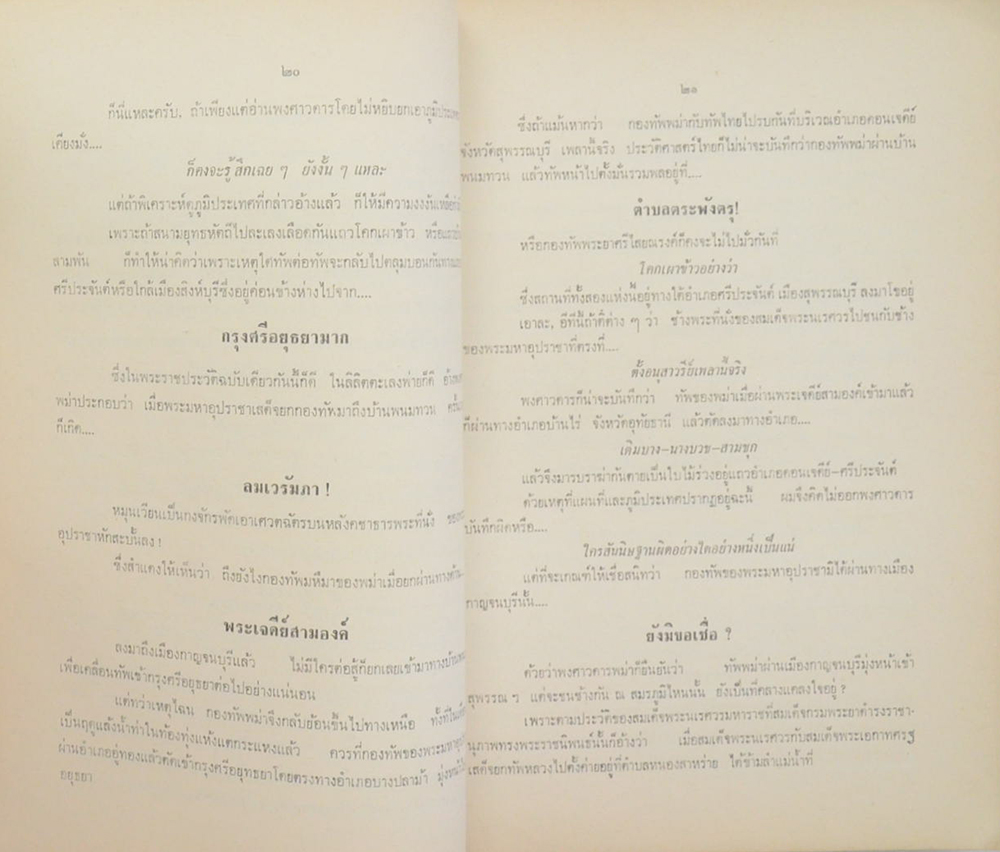 ๒๐
ก็นี่แหละครับ. ถ้าเพียงแต่อ่านพงศาวดารโดยไม่หยิบยกเอาภูมิประเทศ
เคียงมั่ง....
ก็คงจะรู้สึกเฉย ๆ ยังงั้น ๆ แหละ
แต่ถ้าพิเคราะห์ดูภูมิประเทศที่กล่าวอ้างแล้ว ก็ให้มีความงงงัน
เพราะถ้าสนามยุทธหัตถีไปละเลงเลือดกันแถวโคกเผาข้าว หรือ
สามพัน ก็ทำให้น่าคิดว่าเพราะเหตุใดทัพต่อทัพจะกลับไปตลุมบอนกันทาง
ศรีประจันต์หรือใกล้เมืองสิงห์บุรีซึ่งอยู่ค่อนข้างห่างไปจาก....
กรุงศรีอยุธยามาก
ซึ่งในพระราชประวัติฉบับเดียวกันนี้ก็ดี ในลิลิตตะเลงพ่ายก็ดี
พม่าประกอบว่า เมื่อพระมหาอุปราชาเสด็จยกกองทัพมาถึงบ้านพนมทวน
ก็เกิด....
ลมเวรัมภา !
หมุนเวียนเป็นกงจักรพัดเอาเศวตฉัตรบนหลังคชาธารพระที่นั่ง
อุปราชาหักสะบั้นลง !
ซึ่งสำแดงให้เห็นว่า ถึงยังไงกองทัพมหึมาของพม่าเมื่อยกผ่านทางด้าน
พระเจดีย์สามองค์
ลงมาถึงเมืองกาญจนบุรีแล้ว ไม่มีใครต่อสู้ก็ยกเลยเข้ามาทางบ้าน
เพื่อเคลื่อนทัพเข้ากรุงศรีอยุธยาต่อไปอย่างแน่นอน
แต่ทว่าเหตุไฉน กองทัพพม่าจึงกลับย้อนขึ้นไปทางเหนือ ทั้งที่ใน
เป็นฤดูแล้งน้ำท่าในท้องทุ่งแห้งแตกระแหงแล้ว ควรที่กองทัพของพระมหา
ผ่านอำเภออู่ทองแล้วตัดเข้ากรุงศรีอยุทธยาโดยตรงทางอำเภอบางปลาม้า มุ่ง
อยุธยา
๒๑
ซึ่งถ้าแม้นหากว่า กองทัพพม่ากับทัพไทยไปรบกันที่บริเวณอำเภอดอนเจดีย์
จังหวัดสุพรรณบุรี เพลานี้จริง ประวัติศาสตร์ไทยก็ไม่น่าจะบันทึกว่ากองทัพพม่าผ่านบ้าน
พนมทวน แล้วทัพหน้าไปตั้งมั่นรวมพลอยู่ที่....
ตำบลตระพังตรุ!
หรือกองทัพพระยาศรีไสยณรงค์ก็คงจะไม่ไปมั่วกันที่
โคกเผาข้าวอย่างว่า
ซึ่งสถานที่ทั้งสองแห่งนี้อยู่ทางใต้อำเภอศรีประจันต์ เมืองสุพรรณบุรี ลงมาโขอยู่
เอาละ, อีทีนี้ถ้าคิดต่าง ๆ ว่า ช้างพระที่นั่งของสมเด็จพระนเรศวรไปชนกับช้าง
ของพระมหาอุปราชาที่ตรงที่....
ตั้งอนุสาวรีย์เพลานี้จริง
พงศาวดารก็น่าจะบันทึกว่า ทัพของพม่าเมื่อผ่านพระเจดีย์สามองค์เข้ามาแล้ว
ก็ผ่านทางอำเภอบ้านไร่ จังหวัดอุทัยธานี แล้วตัดลงมาทางอำเภอ....
เดิมบาง-นางบวช-สามชุก
แล้วจึงมารบราฆ่ากันตายเป็นใบไม้ร่วงอยู่แถวอำเภอดอนเจดีย์-ศรีประจันต์
ด้วยเหตุที่แผนที่และภูมิประเทศปรากฏอยู่ฉะนี้ ผมจึงคิดไม่ออกพงศาวดาร
บันทึกผิดหรือ....
ใครสันนิษฐานผิดอย่างใดอย่างหนึ่งเป็นแน่
แต่ที่จะเกณฑ์ให้เชื่อสนิทว่า กองทัพของพระมหาอุปราชามิได้ผ่านทางเมือง
กาญจนบุรีนั้น....
ยังมิขอเชื่อ ?
ด้วยว่าพงศาวดารพม่าก็ยืนยันว่า ทัพพม่าผ่านเมืองกาญจนบุรีมุ่งหน้าเข้า
สุพรรณ ๆ แต่จะชนช้างกัน ณ สมรภูมิไหนนั้น ยังเป็นที่คลางแคลงใจอยู่ ?
เพราะตามประวัติของสมเด็จพระนเรศวรมหาราชที่สมเด็จกรมพระยาดำรงราชา-
นุภาพทรงพระราชนิพนธ์นั้นก็อ้างว่า เมื่อสมเด็จพระนเรศวรกับสมเด็จพระเอกาทศรฐ
เสด็จยกทัพหลวงไปตั้งค่ายอยู่ที่ตำบลหนองสาหร่าย ได้ข้ามลำแม่น้ำที่